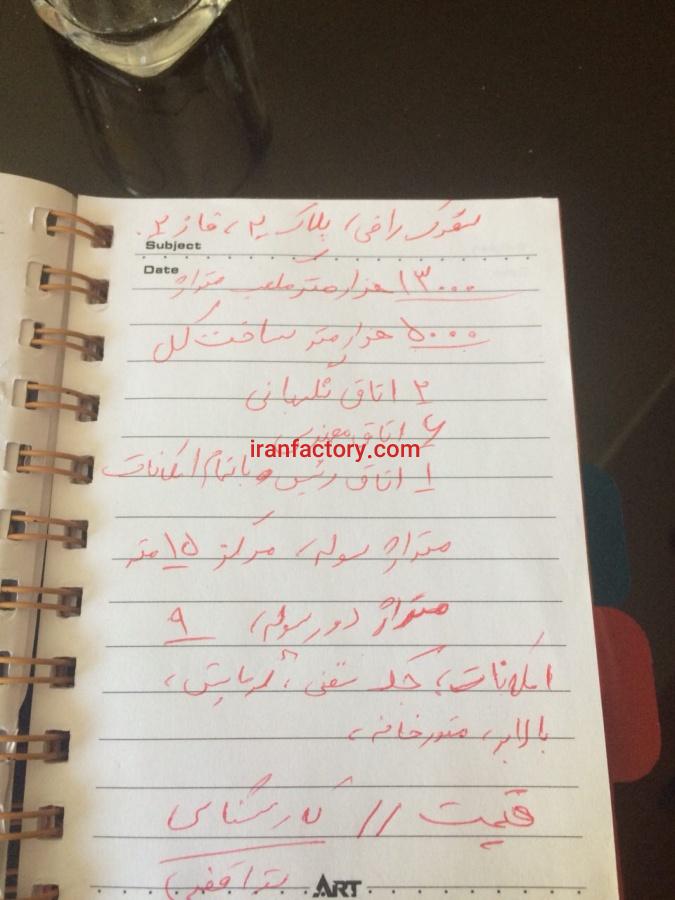 شهرک راضی، پلاک ۲، فاز ۲.
Subject
Date
۱۳۰۰۰ هزار متر مکعب متراژ
۵۰۰۰ هزار متر ساخت کل
۲ اتاق نگهبانی
۶ اتاق مهندس
iranfactory.com
۱ اتاق رئیس با تمام امکانات
متراژ سوله، مرکز ۱۵ متر
متراژ دور سوله، ۹
امکانات؛ جک سقفی، گرمایش،
بالابر، متورخانه،
قیمت // کارشناسی
توافقی
ART